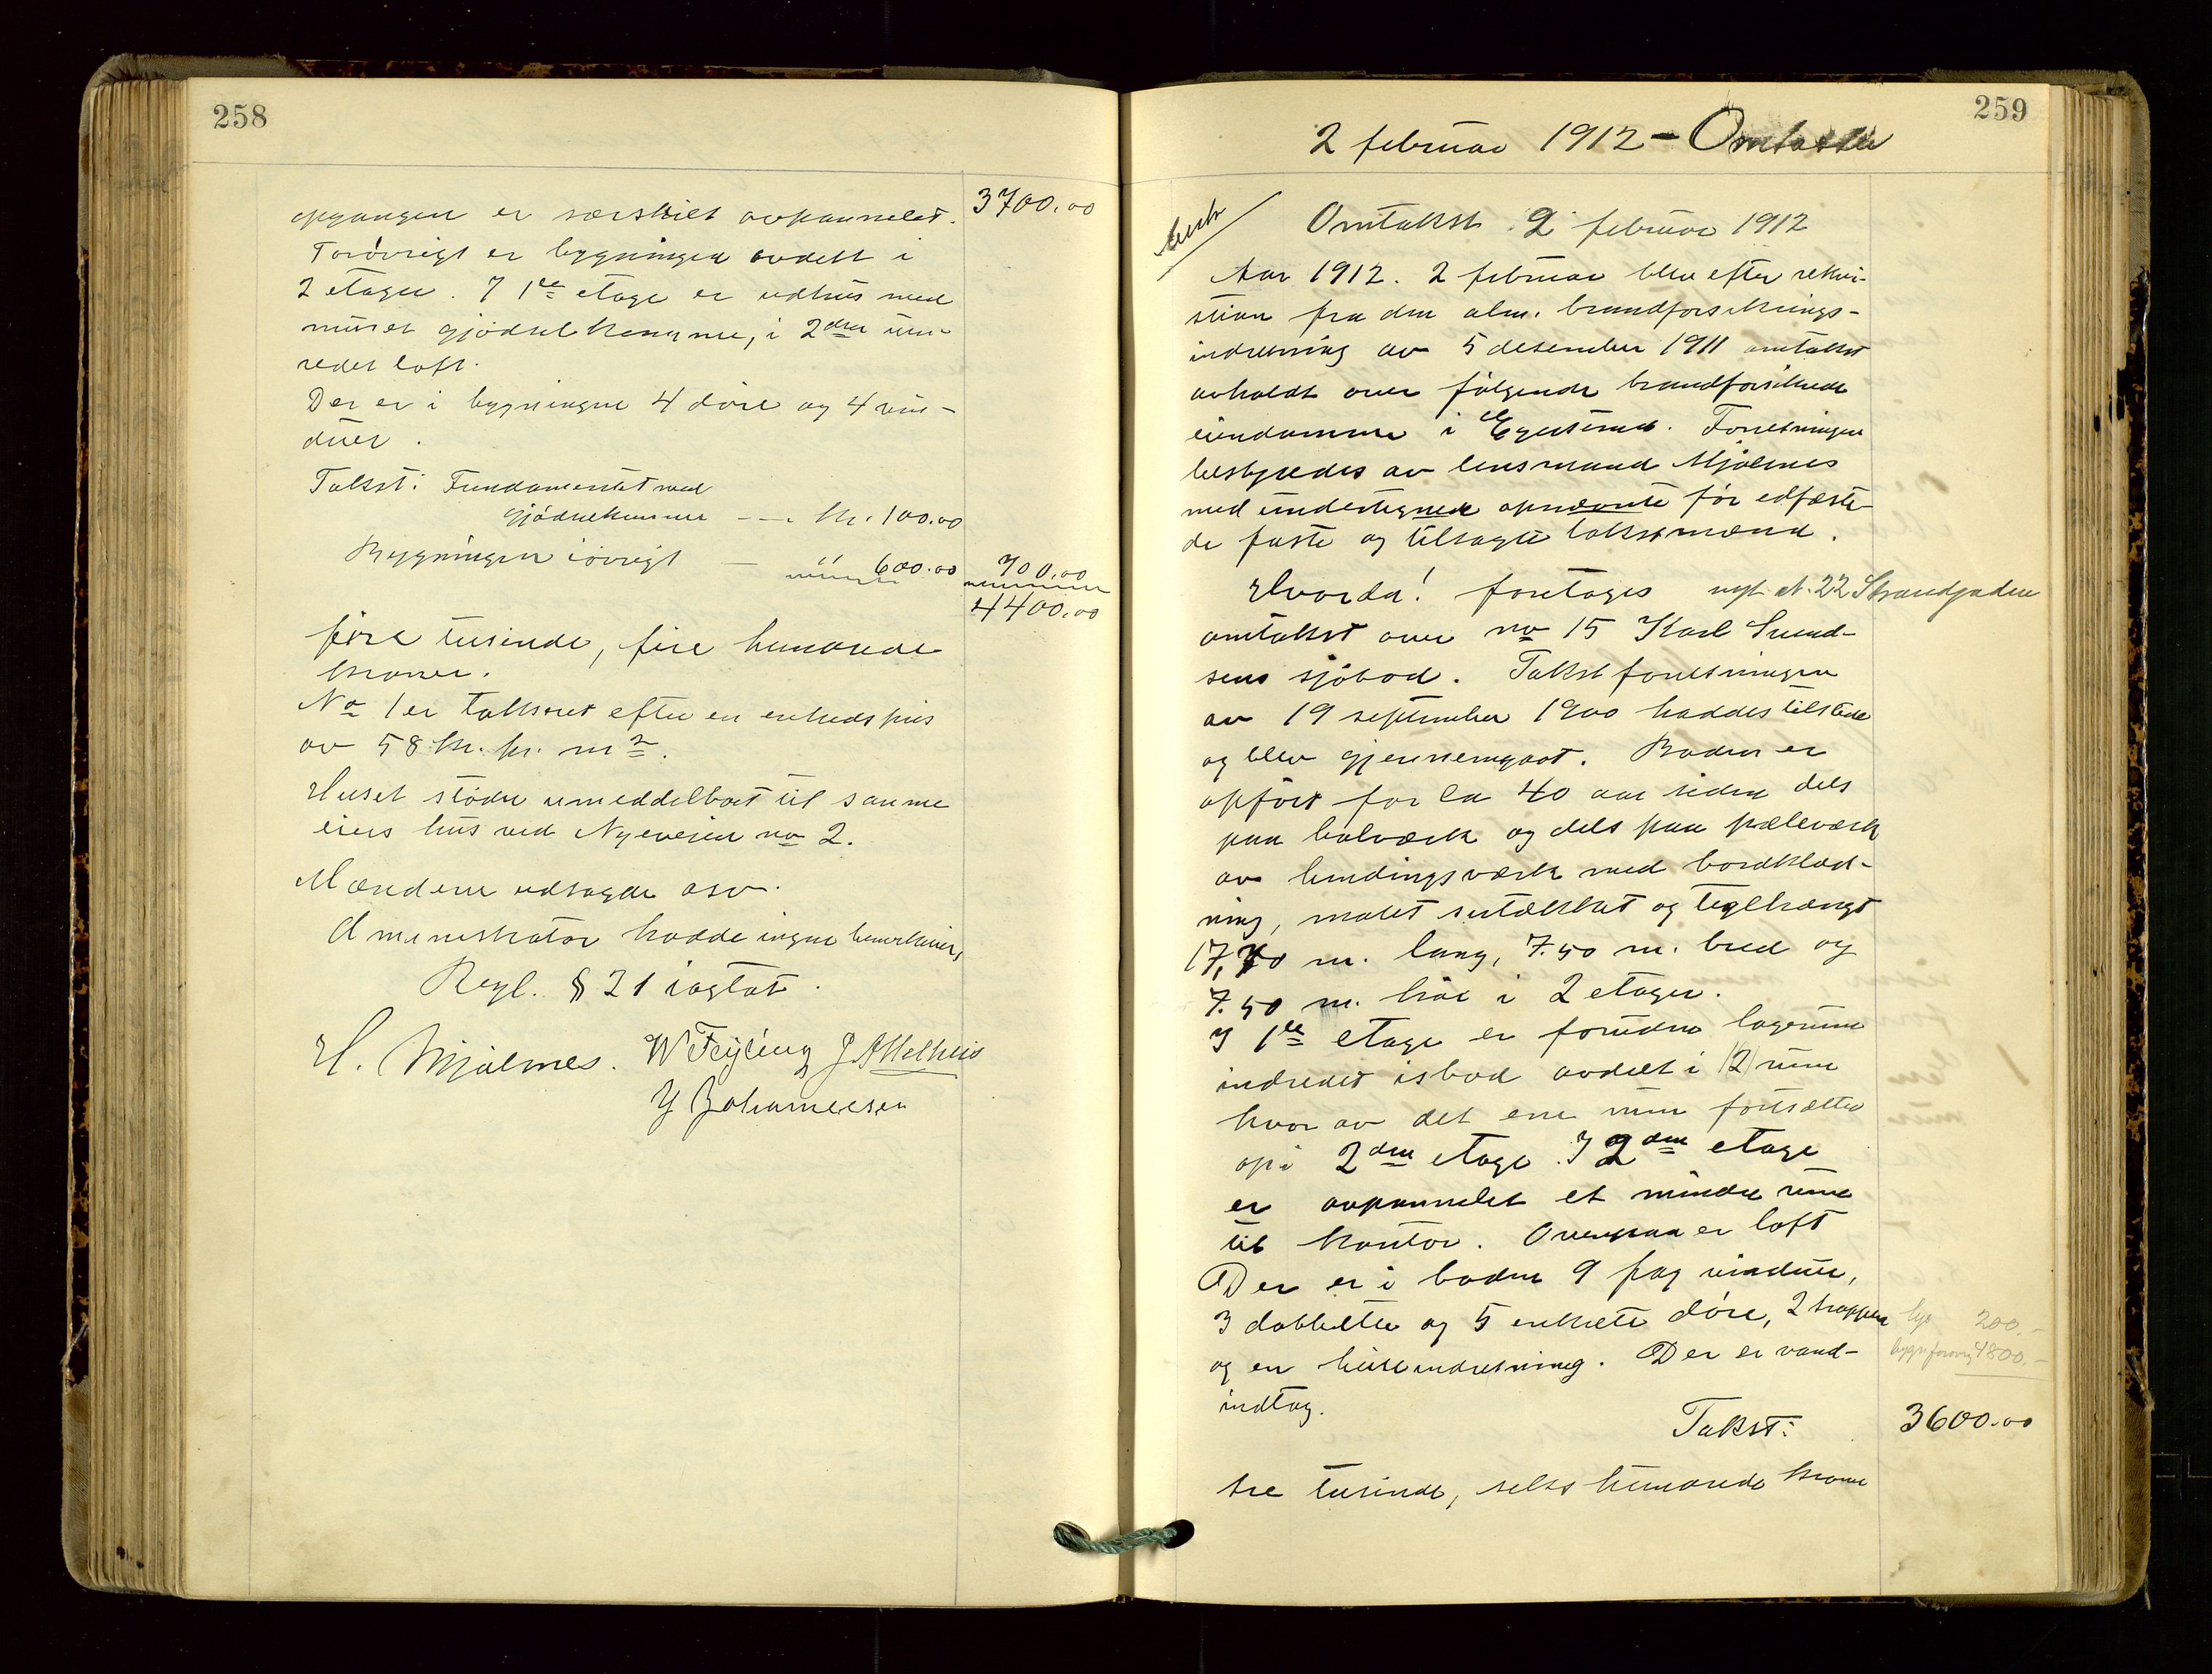 258
opgangen er særskilt avpannelet. 3700.00
Forøvrigt er bygningen avdelt i
2 etager. I 1ste etage er udhus med
muret gjødselkumme, i 2den uind-
redet loft.
Der er i bygningen 4 døre og 4 vin-
duer.
Takst: Fundamentet med
gjødselkumme — kr. 100.00
Bygningen iøvrigt — " 600.00 700.00
4400.00
fire tusinde, fire hundrede
kroner.
No 1 er takseret efter en enhedspris
av 58 kr. pr. m2.
Huset støder umeddelbart til samme
eiers hus ved Nyeveien no 2.
Mændene udsagde osv.
Aministrator hadde ingen bemerkning
Regl. § 21 iagtat.
H. Mjølnes. W Feyling
Y Johannesen
259
2 februar 1912 - Omtakst
Omtakst 2 februar 1912
Aar 1912. 2 februar blev efter rekvi-
stion fra den alm. brandforsikrings-
indretning av 5 desember 1911 omtakst
avholdt over følgende brandforsikrede
eiendomme i Egersund. Forretningen
bestyredes av lensmand Mjølnes
med undertegnede opnævnte før edfæste-
de faste og tilsagte takstmænd.
Hvorda! foretages nyt N. 22 Strandgaden
omtakst over no 15 Karl Svend-
sens sjøbod. Takstforretningen
av 19 september 1900 haddes tilstede
og blev gjennemgaat. Boden er
opført for ca 40 aar siden dels
paa bolværk og dels paa pæleværk
av bindingsværk med bordklæd-
ning, malet sutækket og teglhængt
17,70 m. lang, 7.50 m. bred og
7.50 m. høi i 2 etager.
I 1ste etage er foruden lagerrum
indredet isbod avdelt i (2) rum
hvor av det ene rum fortsætter
op i 2den etage. I 2den etage
er avpannelet et mindre rum
til kontor. Ovenpaa er loft
Der er i boden 9 fag vinduer,
3 dobbelte og 5 enkelte døre, 2 trapper
og en heiseindretning. Der er vand-
indtag.
200.-
4800.-
Takst: 3600.00
tre tusinde, seks hundrede kroner